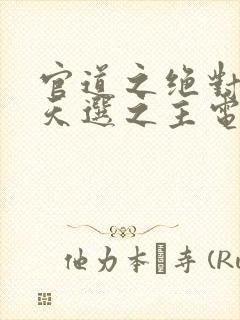 官道之绝對
天選之主電
他力本�寺 (Ru